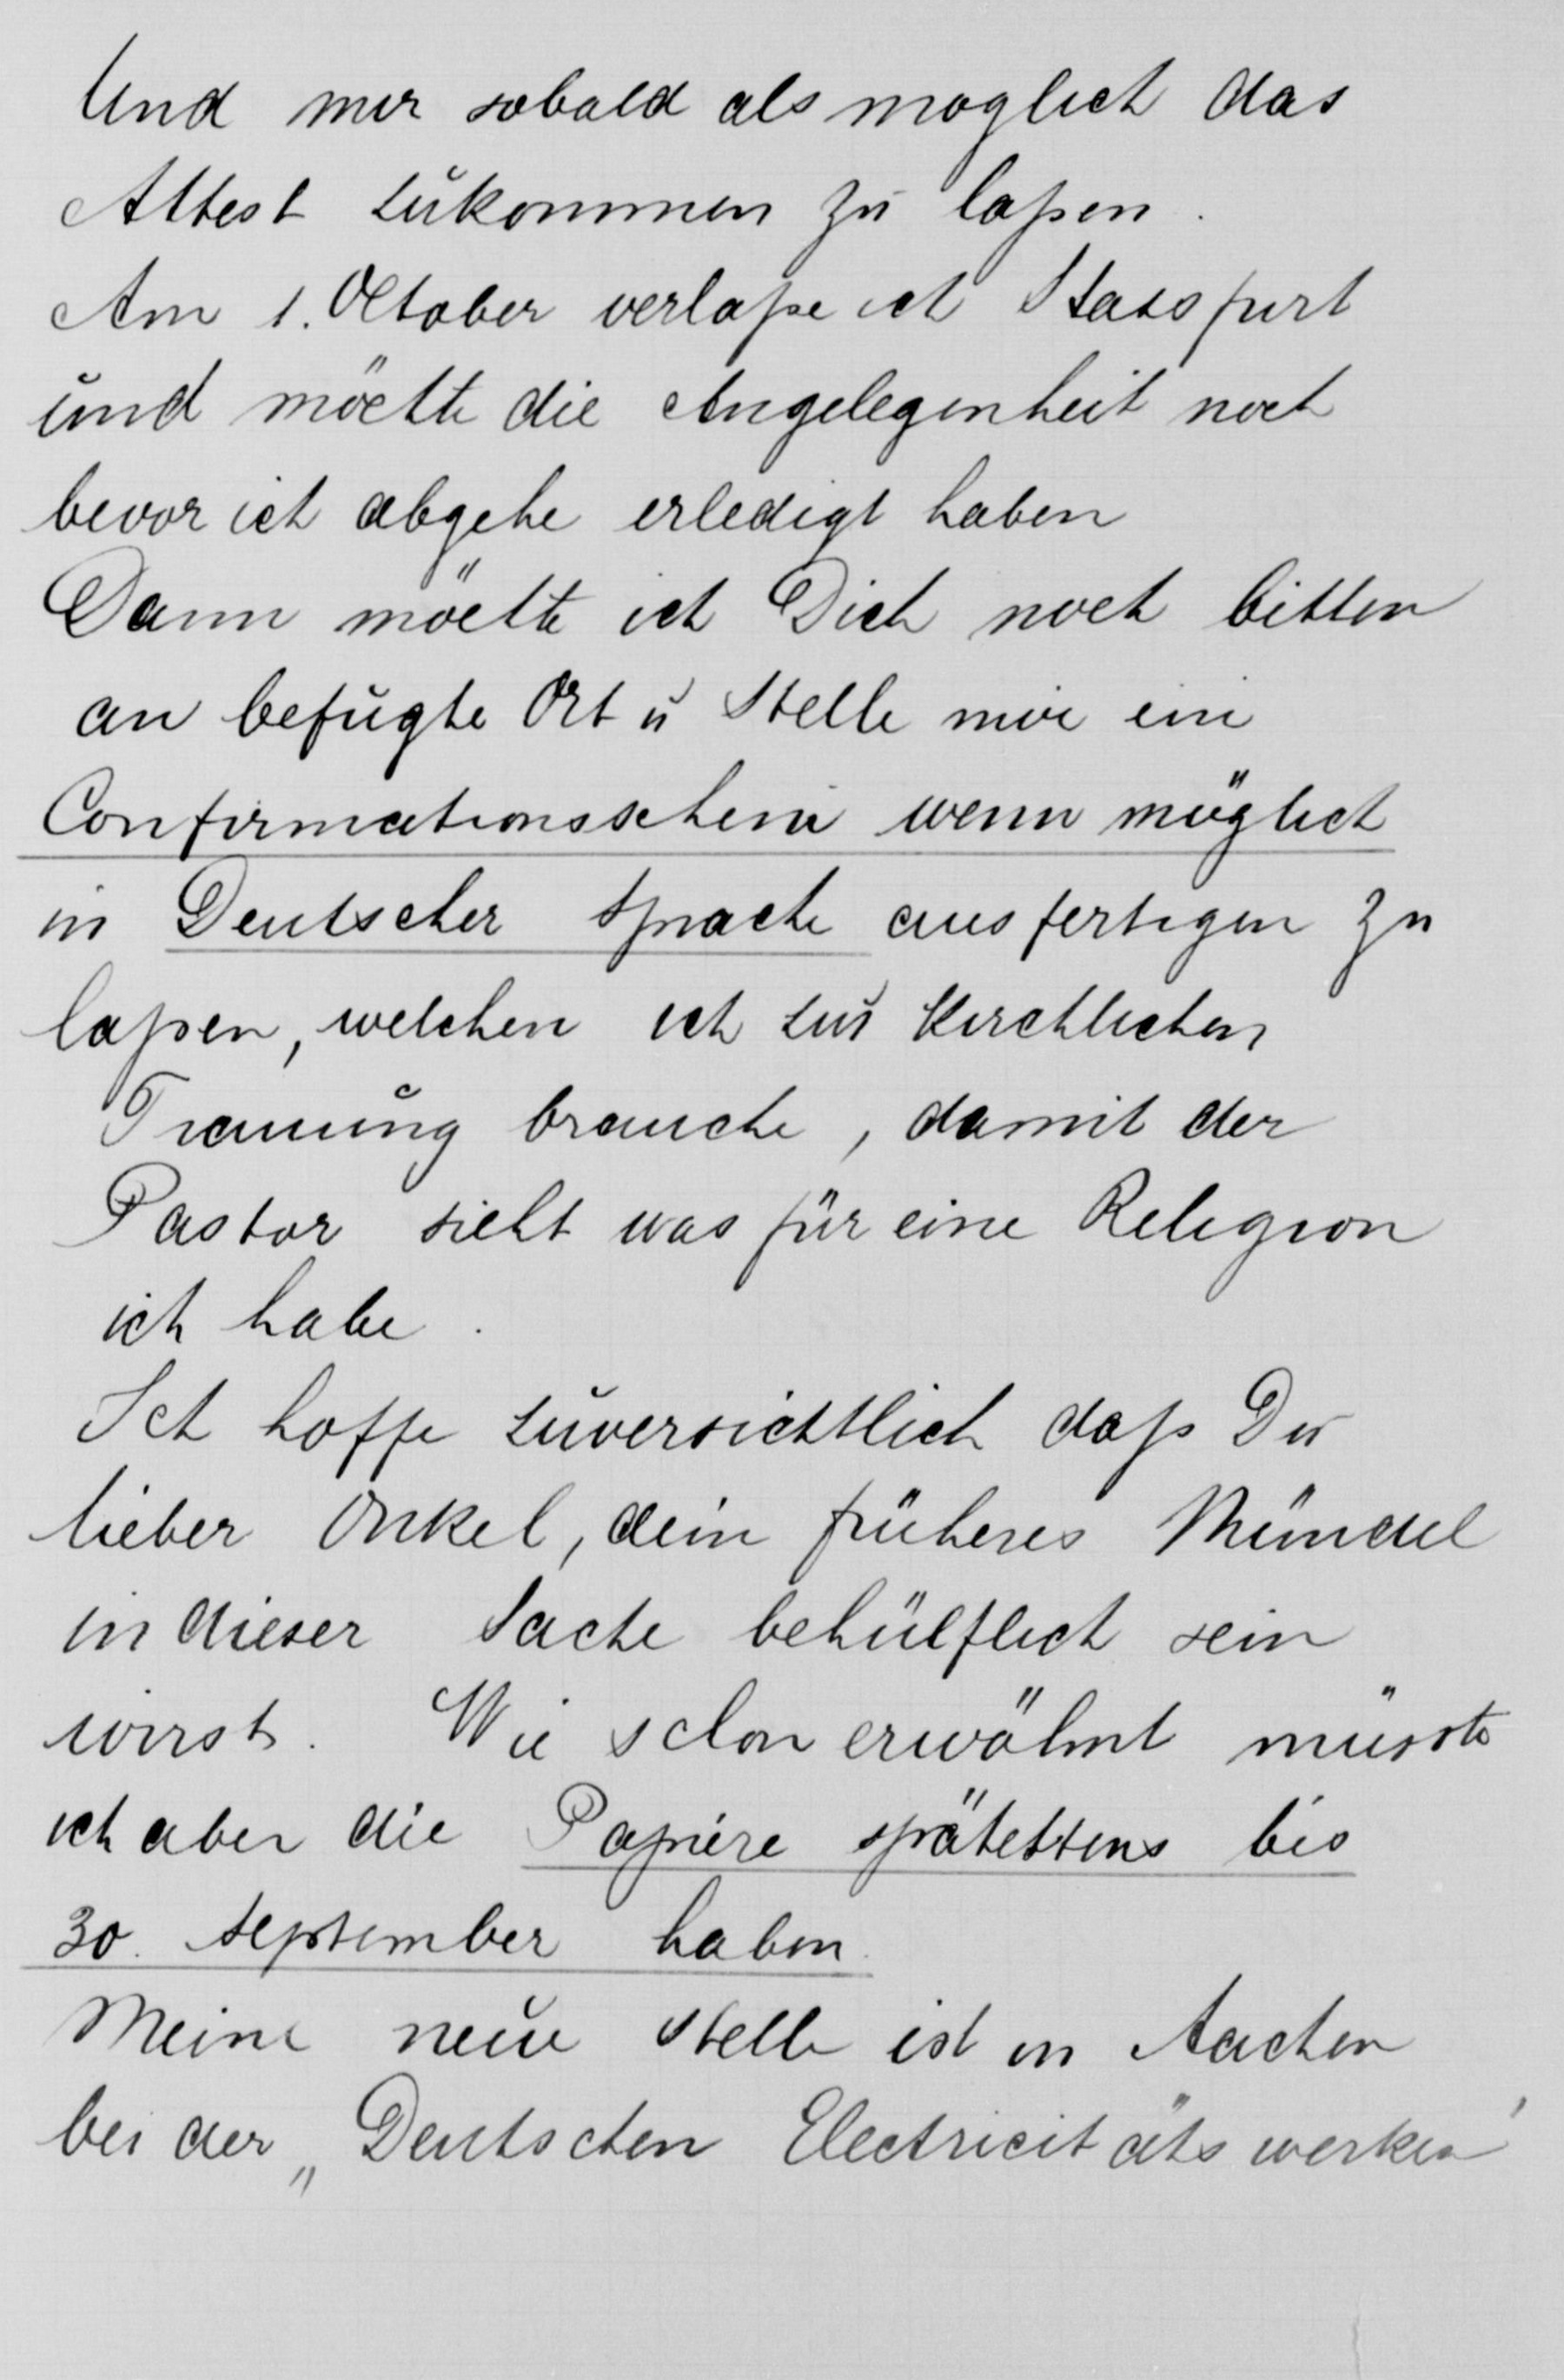 Und mir sobald als moglich das
Attest zukommen zu laßen.
Am 1. October verlaße ich Stassfurt
und möchte die Angelegenheit noch
bevor ich abgehe erledigt haben
Dann möchte ich Dich noch bitten
an befugte Ort u Stelle mir ein
Confirmationsschein wenn möglich
in Deutscher Sprache ausfertigen zu
laßen, welchen ich zur kirchlichen
Trauung brauche, damit der
Pastor sieht was für eine Religion
ich habe.
Ich hoffe zuversichtlich daß Du
lieber Onkel, dein früheres Mündel
in dieser Sache behülflich sein
wirst. Wie schon erwähnt müsste
ich aber die Papiere spätestens bis
30. September haben.
Meine neue Stelle ist in Aachen
bei der „Deutschen Electricitätswerken"